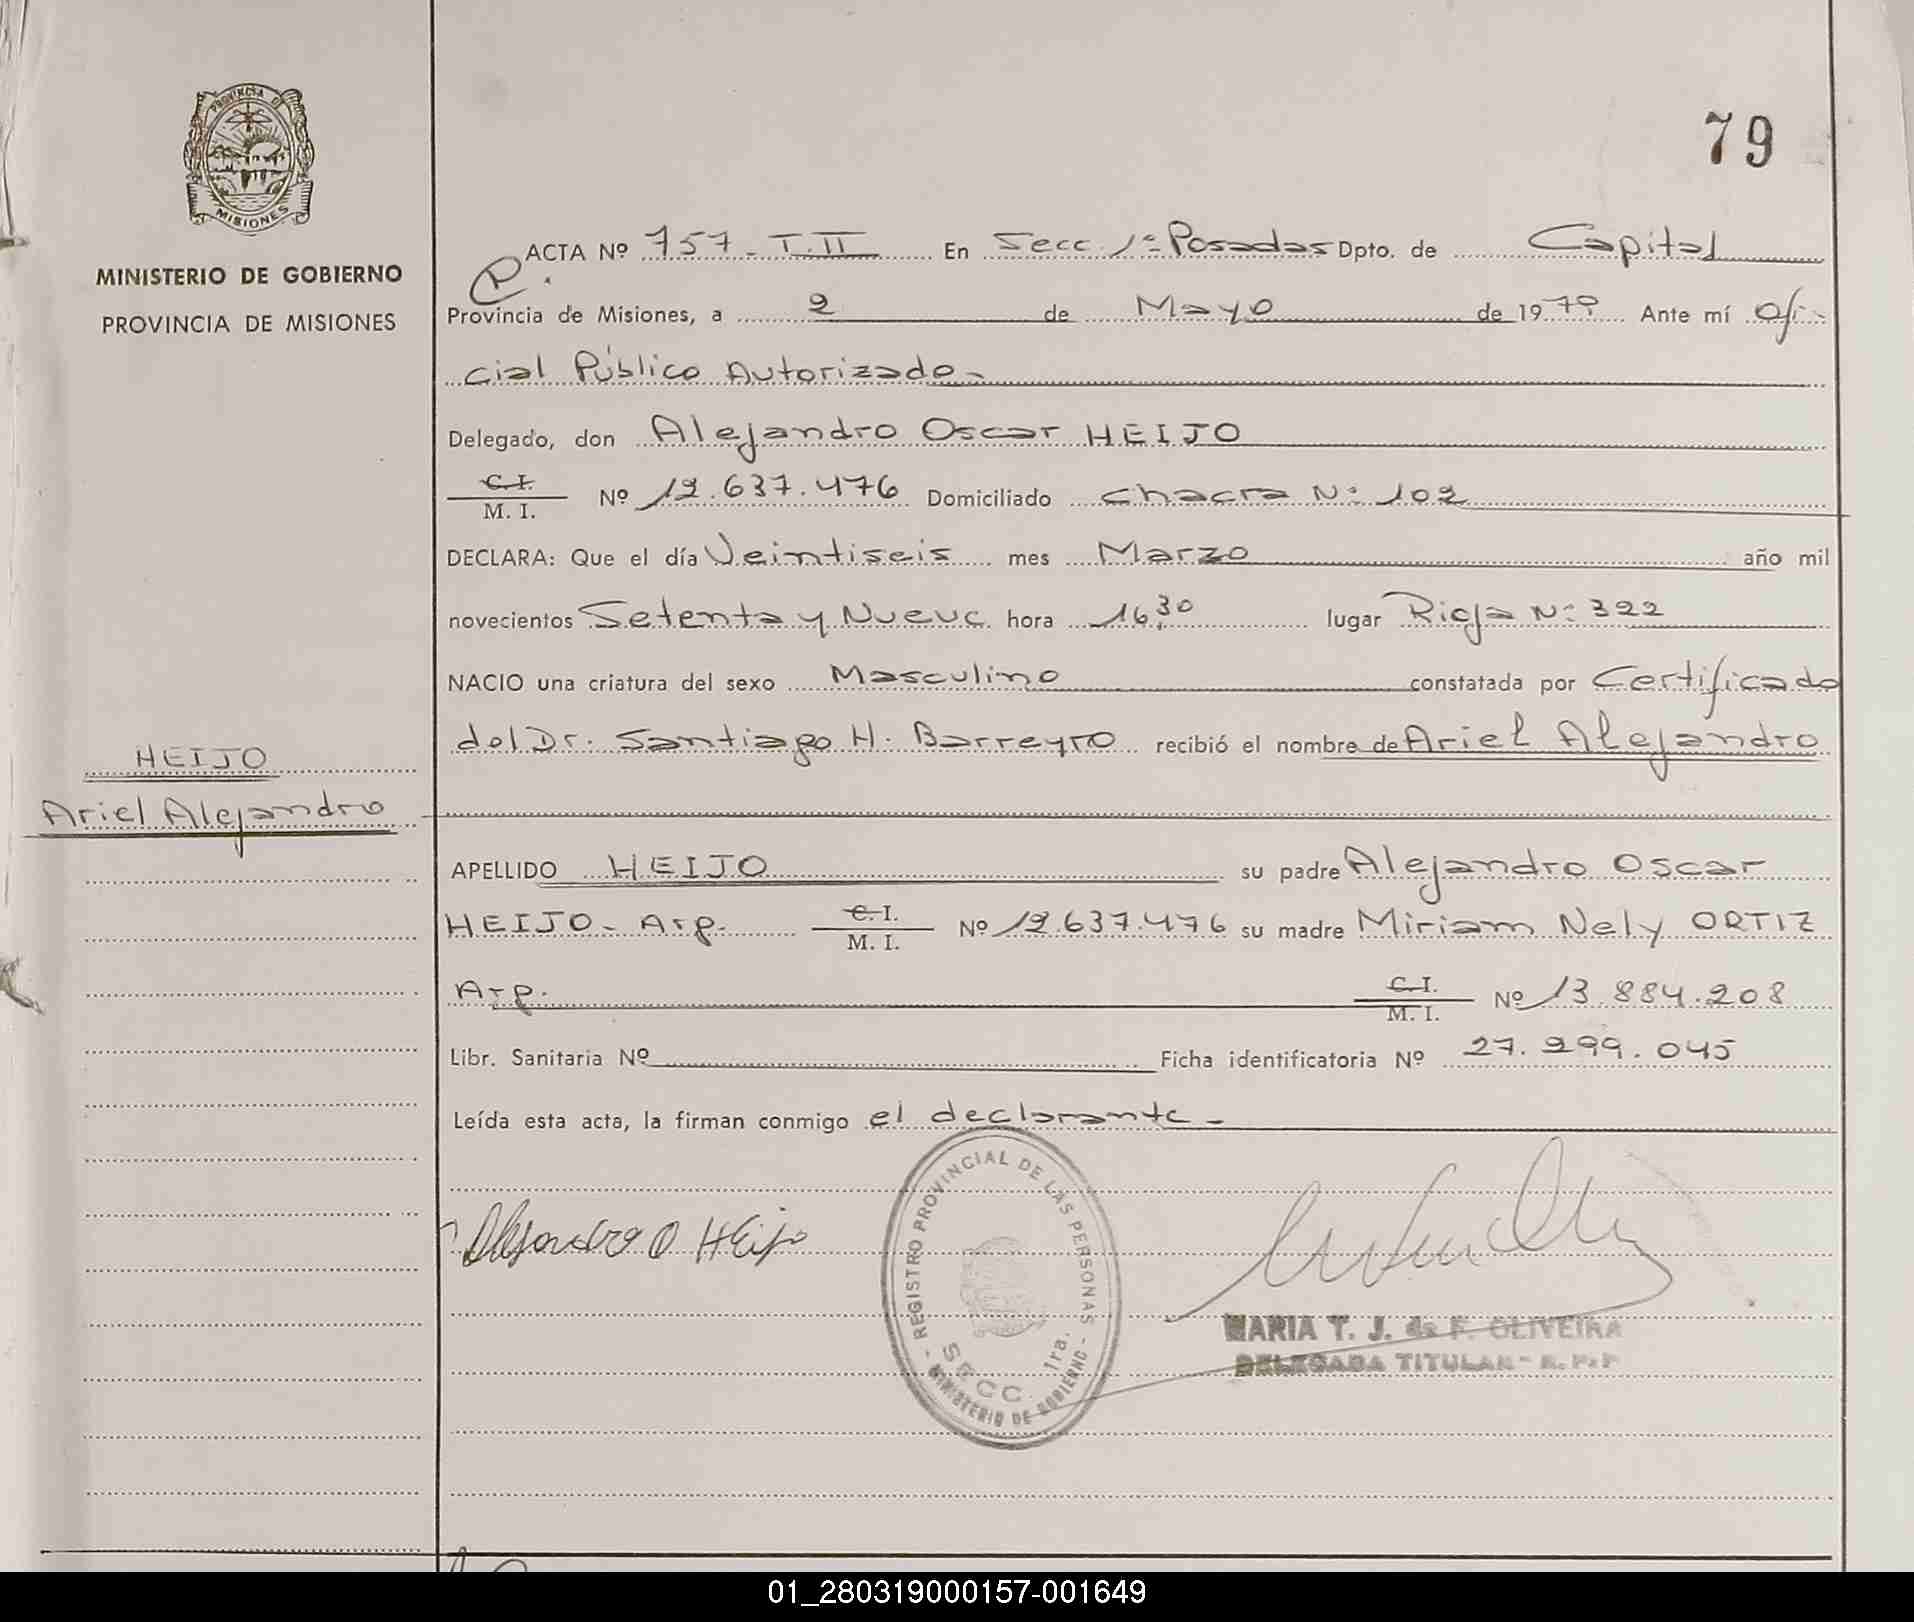 PROVINCIA DE
MISIONES
MINISTERIO DE GOBIERNO
PROVINCIA DE MISIONES
HEIJO
Ariel Alejandro
79
ACTA Nº 757 - T. II En Secc. 1ª Posadas Dpto. de Capital
Provincia de Misiones, a 2 de Mayo de 1979 Ante mí Ofi-
cial Público Autorizado -
Delegado, don Alejandro Oscar HEIJO
C. I.
M. I. Nº 12.637.476 Domiciliado Chacra Nº 102
DECLARA: Que el día Veintiseis mes Marzo año mil
novecientos Setenta y Nueve hora 16,30 lugar Rioja Nº 322
NACIO una criatura del sexo Masculino constatada por Certificado
del Dr. Santiago H. Barreyro recibió el nombre de Ariel Alejandro
APELLIDO HEIJO su padre Alejandro Oscar
HEIJO - Arg. C. I. M. I. Nº 12.637.476 su madre Miriam Nely ORTIZ
Arg. C. I. M. I. Nº 13.884.208
Libr. Sanitaria Nº Ficha identificatoria Nº 27.299.045
Leída esta acta, la firman conmigo el declarante -
Alejandro O Heijo
- REGISTRO PROVINCIAL DE LAS PERSONAS -
SECC. 1ra.
MINISTERIO DE GOBIERNO
MARIA T. J. de F. OLIVEIRA
DELEGADA TITULAR - R. P. P
01_280319000157-001649